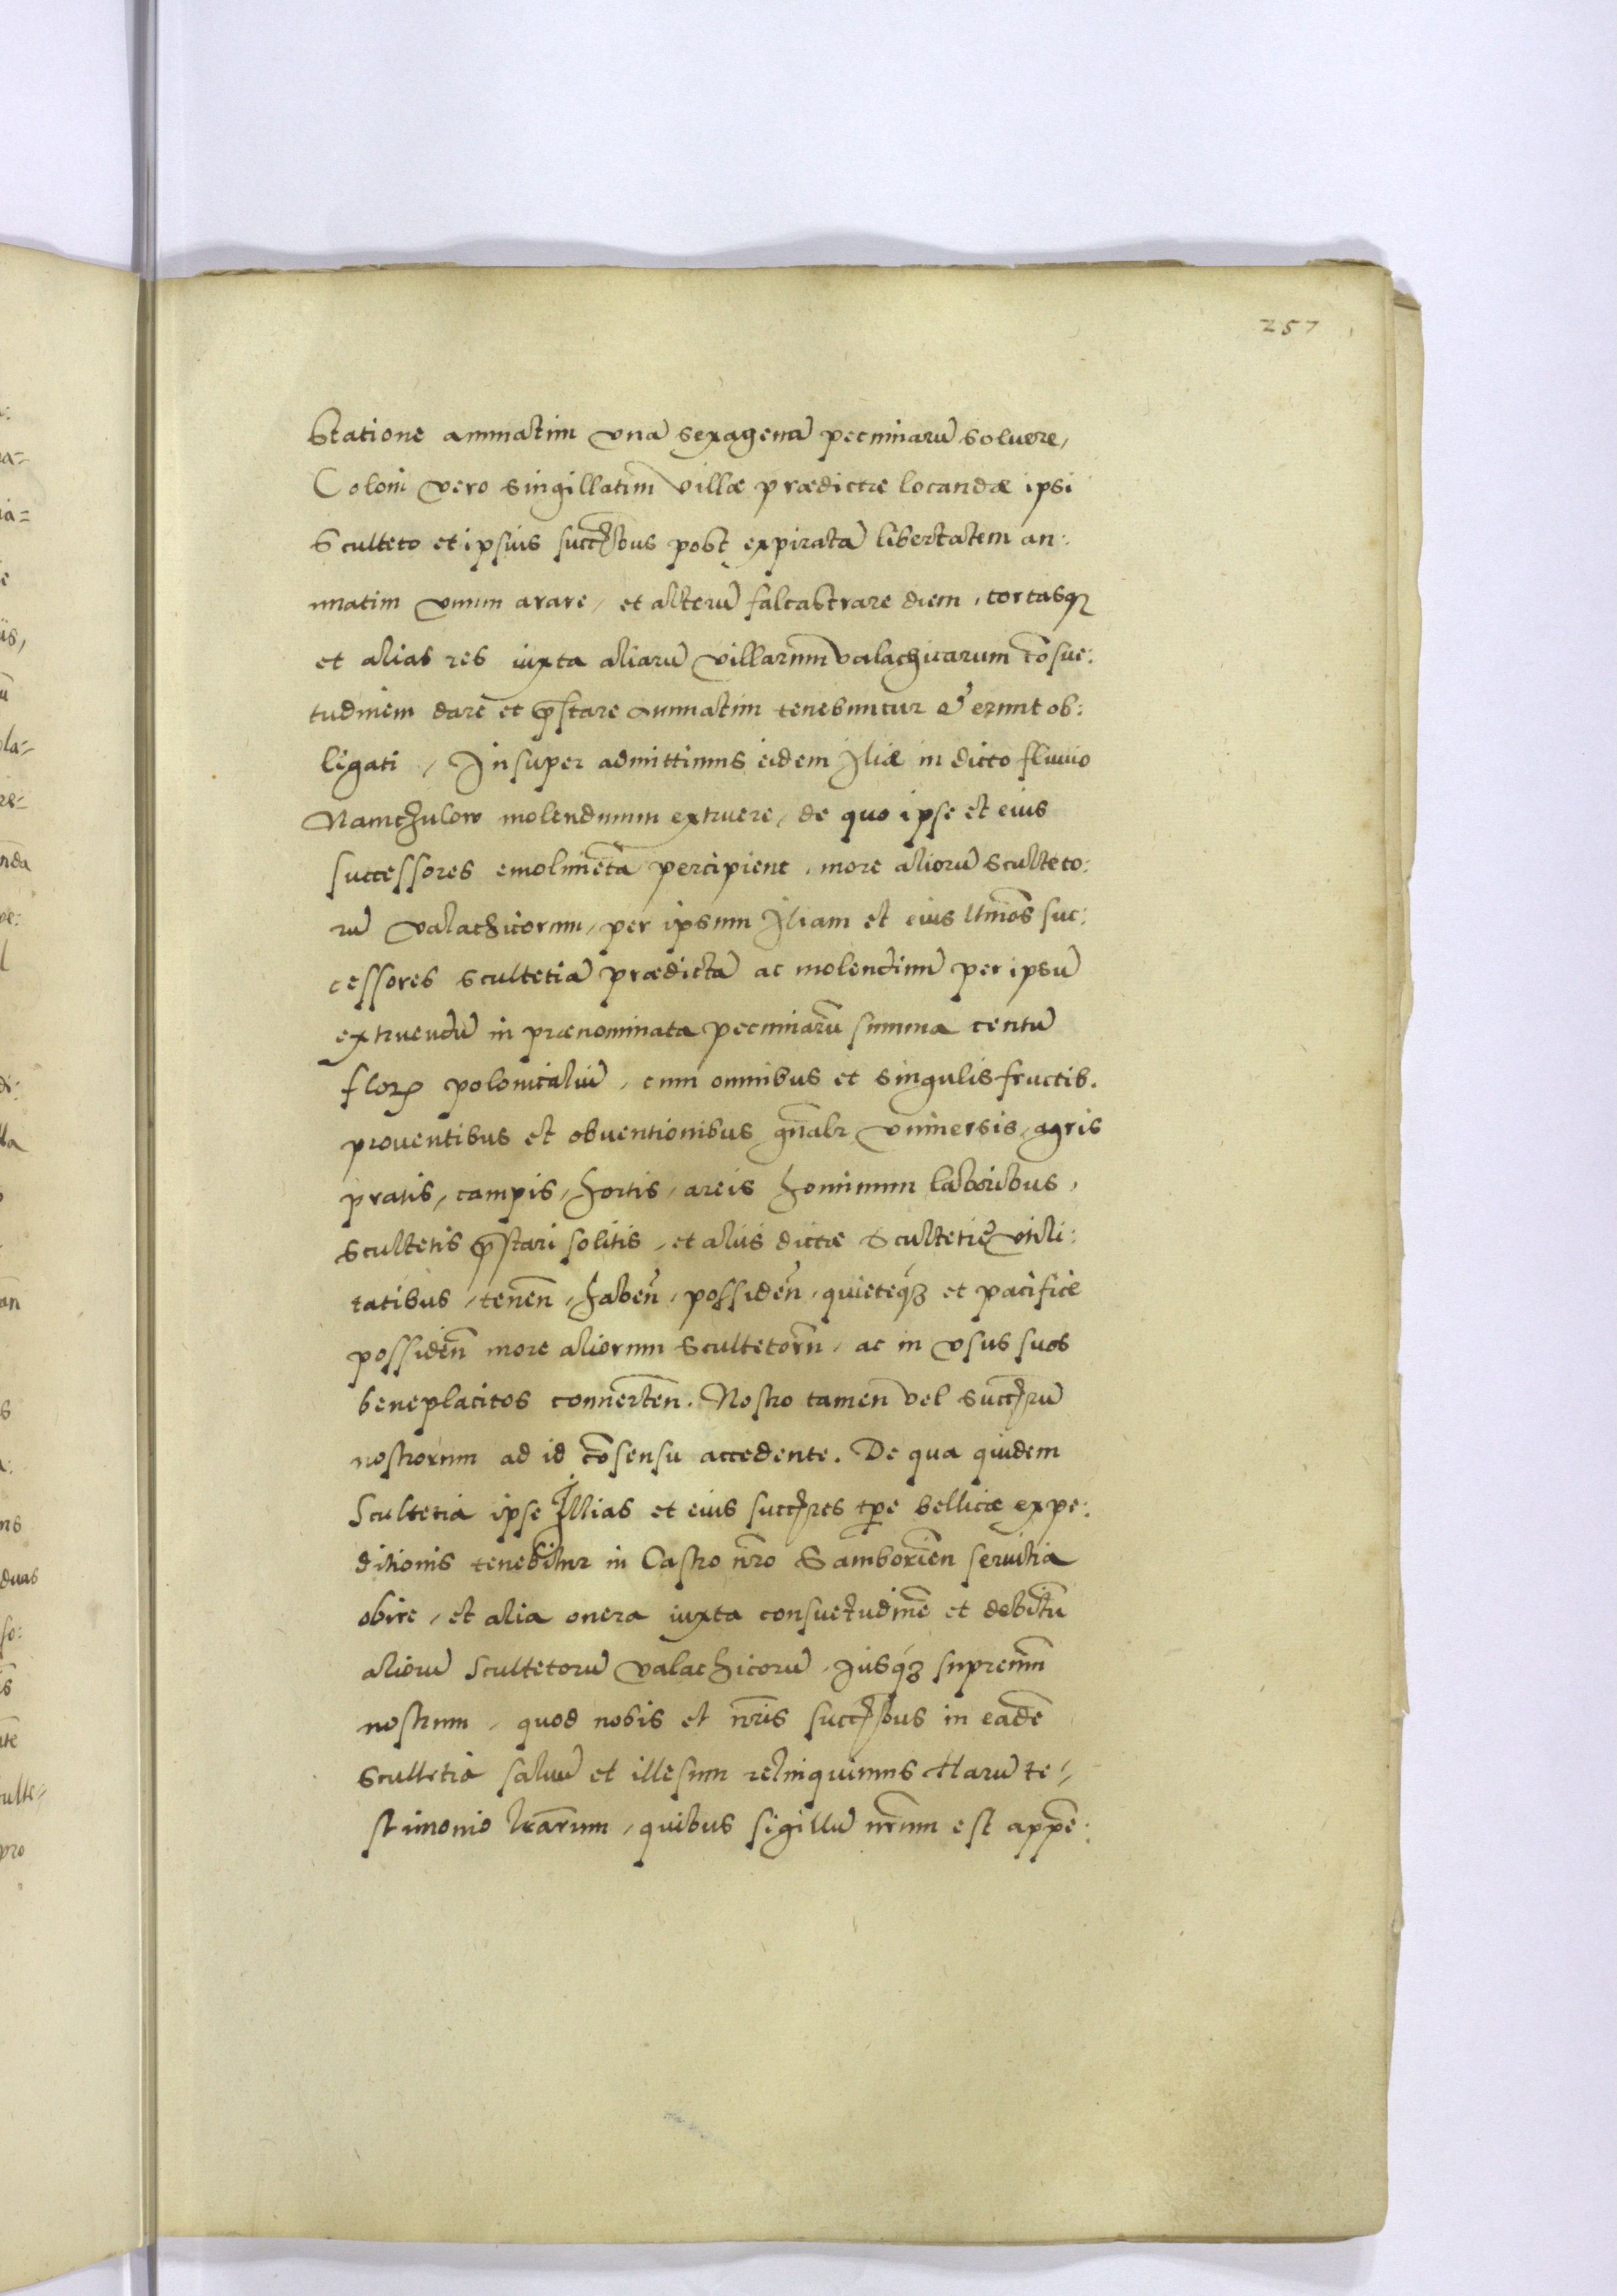 257
statione annuatim vnā sexagenā pecuniarū soluere,
Coloni vero singillatim villæ prædictæ locandæ ipsi
Sculteto et ipsius succōribus post expiratā libertatem an:
nuatim vnum arare, et alterū falcastrare diem, tortasq₃
et alias res iuxta aliarū villarum valachicarum cōsue:
tudinem dare et p̄stare annuatim tenebuntur & erunt ob:
ligati, Insuper admittimus eidem Iliæ in dicto fluuio
Namczulow molendinum extruere, de quo ipse et eius
successores emolimēta percipient, more aliorū sculteto:
rū valachicorum, per ipsum Iliam et eius l̄timos suc:
cessores scultetiā prædictā ac molendinū per ipsū
extruendū in prænominata pecuniarū summa centū
floꝝ polonicaliū, cum omnibus et singulis fructib.
prouentibus et obuentionibus gn̄alr vniuersis, agris
pratis, campis, hortis, areis hominum laboribus,
scultetis p̄stari solitis, et aliis dictæ Scultetiæ vtili:
tatibus, tenen̄, haben̄, possiden̄, quieteq₃ et pacifice
possiden̄ more aliorum scultetorū, ac in vsus suos
beneplacitos conuerten̄. Nostro tamen vel succōrū
nostrorum ad id cōsensu accedente. De qua quidem
Scultetia ipse Illias et eius succōres tp̄e bellicæ expe:
ditionis tenebitur in Castro nr̄o Samborien̄ seruitia
obire, et alia onera iuxta consuetudinē et debitū
aliorū Scultetorū valachicorū, Iusq₃ supremū
nostrum, quod nobis et nr̄is succōribus in eadē
scultetia saluū et illesum relinquimus Harū te-
stimonio lr̄arum, quibus sigillū nr̄um est appē: